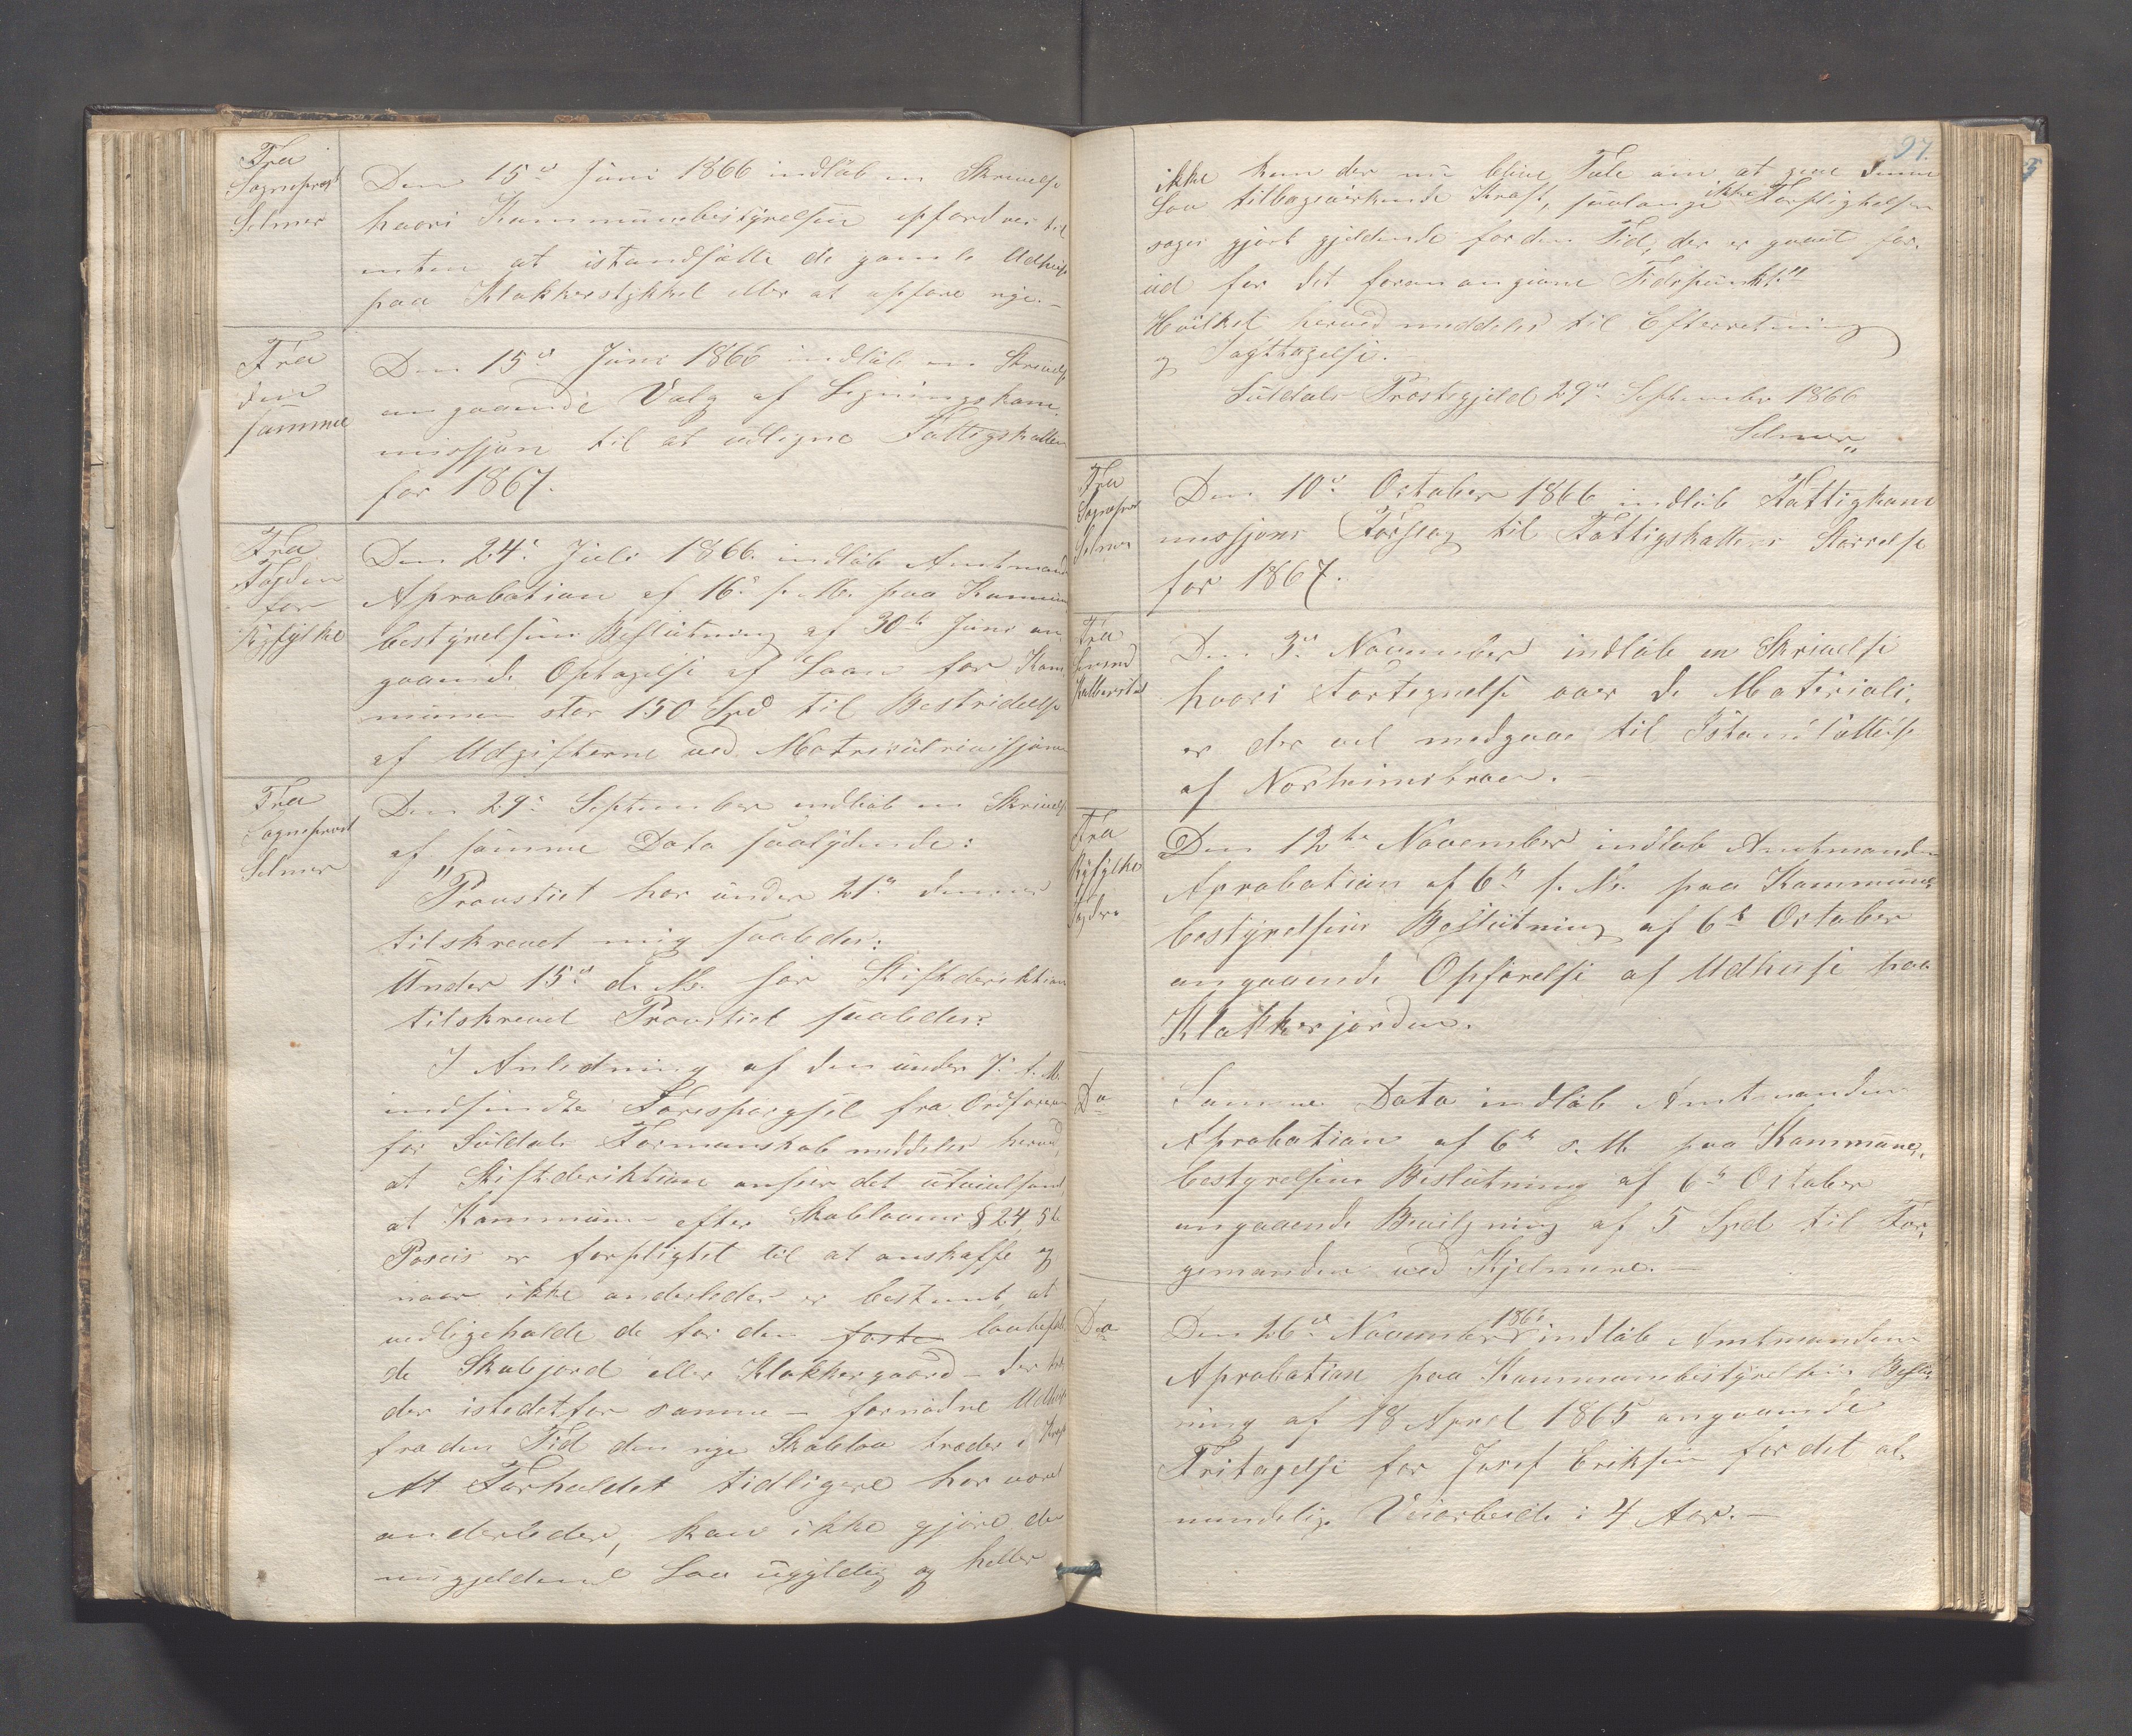 Fra
Sogneprest
Selmer
Den 15de Juni 1866 indløb en Skrivelse
hvori Kommunebestyrelsen opfordres til
enten at istandsætte de gamle Udhuse
paa Klokkerstykket eller at opføre nye. –
Fra
den
samme
Den 15de Juni 1866 indløb en Skrivelse
angaaende Valg af Ligningskom-
missjon til at udligne Fattigskatten
for 1867.
Fra
Fogden
for
Ryfylke
Den 24de Juli 1866 indløb Amtmandens
Aprobation af 16de s. M. paa Kommune
bestyrelsens Beslutning af 30te Juni an
gaaende Optagelse af Laan for Kom
munen stor 150 Spd til Bestridelse
af Udgifterne ved Matrikulrevisjonen
Fra
Sogneprest
Selmer
Den 29de September indløb en Skrivelse
af samme Dato saalydende:
"Provstiet har under 21de dennes
tilskrevet mig saaledes:
Under 15de d. M. har Stiftdirektionen
tilskrevet Provstiet saaledes:
I Anledning af den under 7de f. M.
indsendte Forespørgsel fra Ordføreren
for Suldals Formandskab meddeles herved,
at Stiftdirektionen anseer det utvivlsomt,
at Kommunen efter Skolelovens § 24 5te
Passus er forpligtet til at anskaffe og
naar ikke anderledes er bestemt, at
vedligeholde de for den faste lovbefalede
de Skolejord eller Klokkergaard – der træ
der istedetfor samme – fornødne Udhuse
fra den Tid den nye Skolelov træder i Kraft
At Forholdet tidligere har været
anderledes, kan ikke gjøre den
nugjeldende Lov ugyldig og heller
97.
ikke kan der nu blive Tale om at give denne
Lov tilbagevirkende Kraft, saalænge ikke Forpligtelsen
søges gjort gjeldende for den Tid, der er gaaet for-
ud for det foran angivne Tidspunkt."
Hvilket herved meddeles til Efterretning
og Iagttagelse.
Suldals Prestegjeld 29de September 1866
Selmer"
Fra
Sognepres
Selmer
Den 10de October 1866 indløb Fattigkom
missjons Forslag til Fattigskattens Størrelse
for 1867.
Fra
Den 3de November indløb en Skrivelse
hvori Fortegnelse over de Materiali-
er der vil medgaae til Istandsættelse
af
Fra
Ryfylke
Fogderi
Den 12te November indløb Amtmandens
Aprobation af 6te s. M. paa Kommune-
bestyrelsens Beslutning af 6te October
angaaende Opførelse af Udhuse paa
Klokkerjorden.
Do
Samme Dato indløb Amtmandens
Aprobation af 6te s. M. paa Kommune-
bestyrelsens Beslutning af 6te October
angaaende Bevilgning af 5 Spd til Fær-
gemanden ved
Do
Den 26de November 1866 indløb Amtmandens
Aprobation paa Kommunebestyrelsens Beslut-
ning af 18 April 1865 angaaende
Fritagelse for Josef Eriksen for det al-
mindelige Veiarbeide i 4 Aar. –